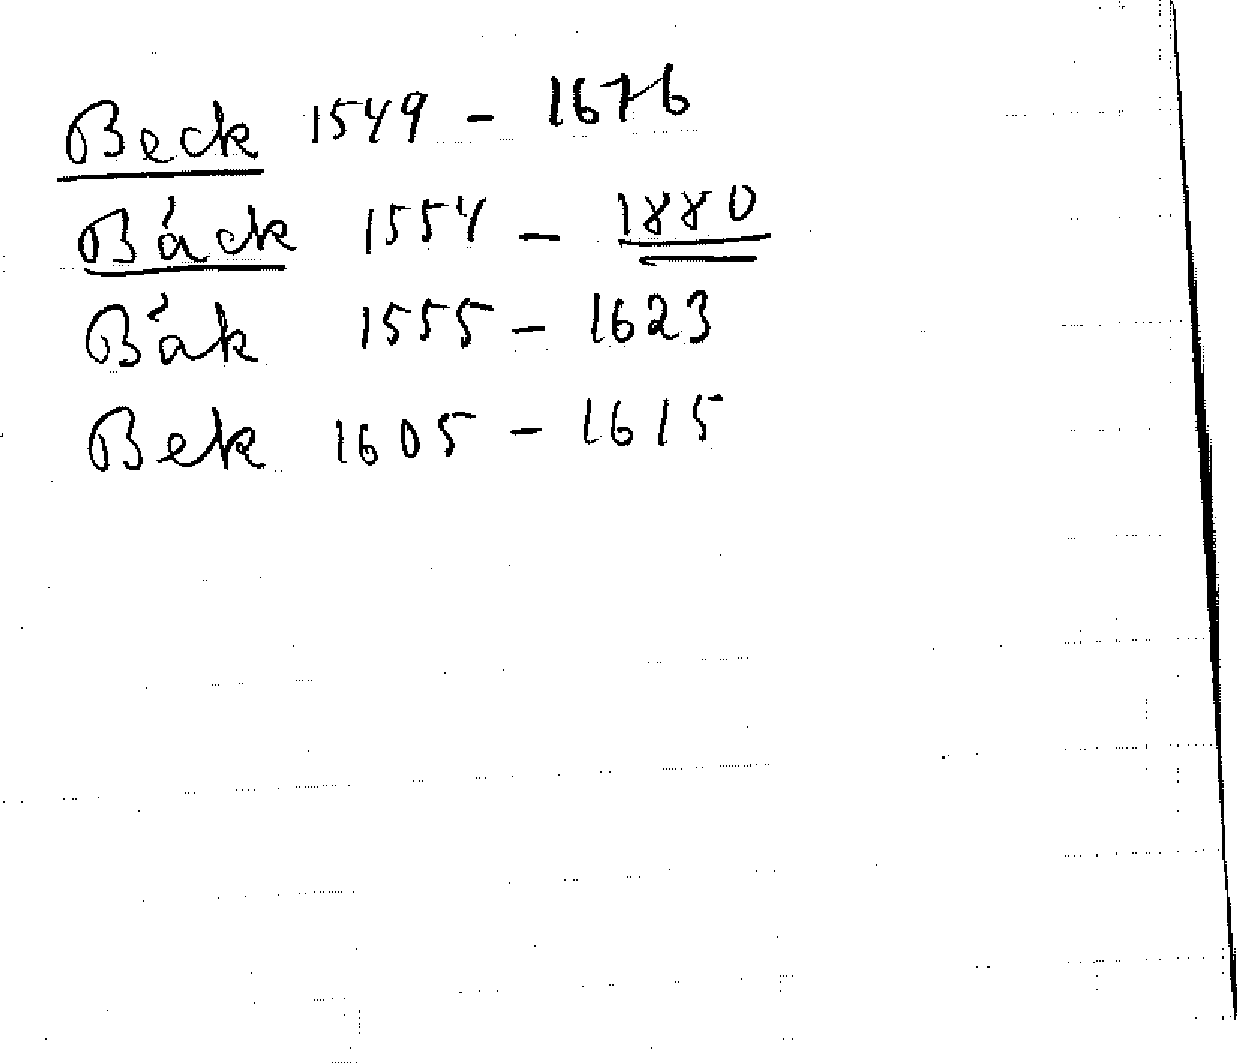 Beck 1549 - 1676
Báck 1554 - 1880
Bák 1555 - 1623
Bek 1605 - 1615